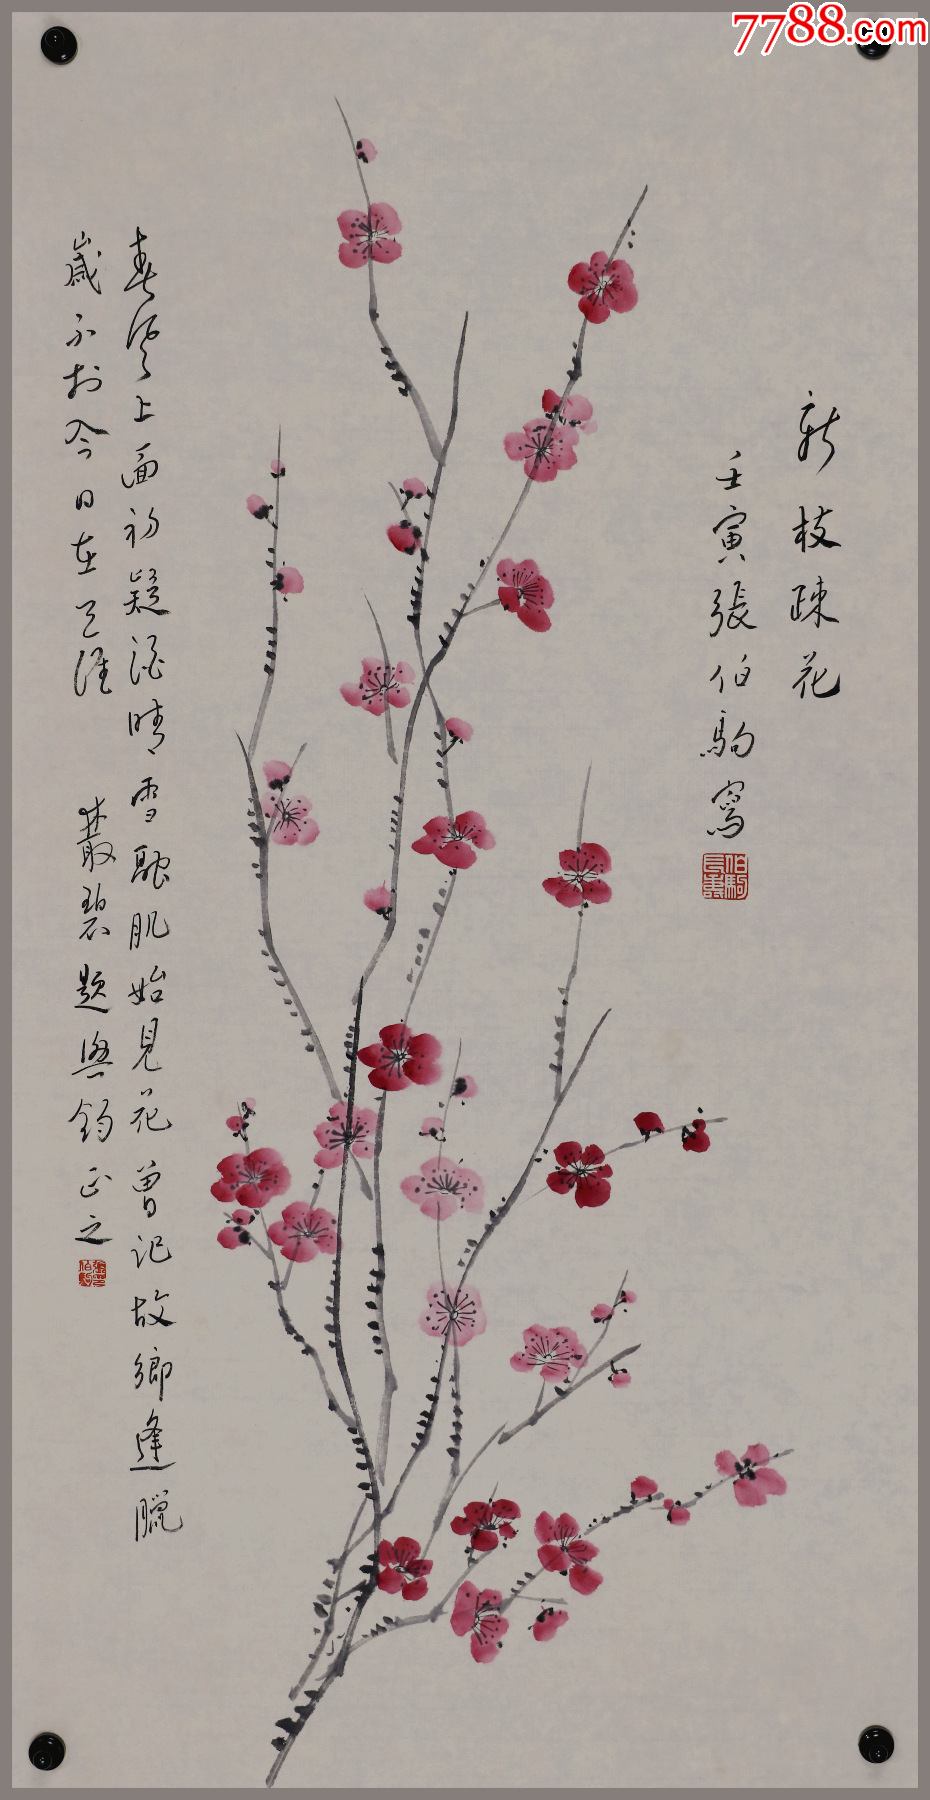 7788.com
新枝疎花
壬寅張伯駒寫
伯駒
長壽
春風上面初疑酒晴雪融肌始見花曾記故鄉逢臘
歲不於今日在天涯
叢碧題與鈞正之